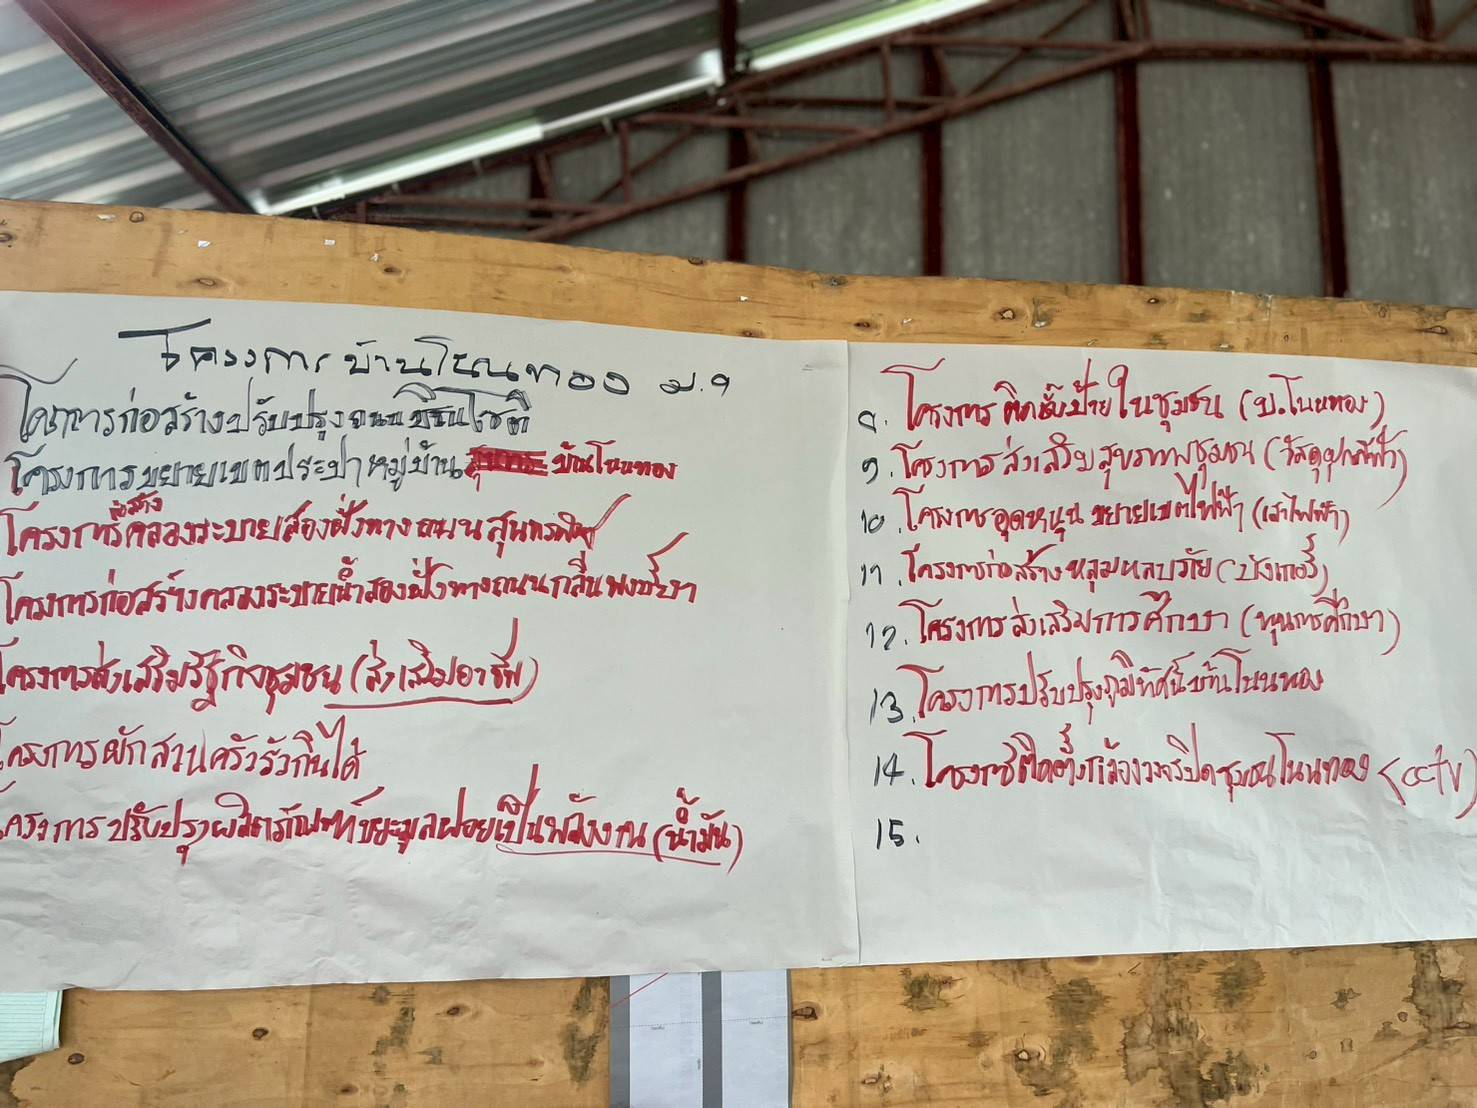 โครงการ บ้านโนนทอง ม.9
โครงการก่อสร้างปรับปรุงถนน
โครงการขยายเขตประปาหมู่บ้าน บ้านโนนทอง
โครงการก่อสร้างคลองระบายสองฝั่งทางถนน
โครงการก่อสร้างคลองระบายน้ำสองฝั่งทางถนนกลิ่น
โครงการส่งเสริมรัฐกิจชุมชน (ส่งเสริมอาชีพ)
โครงการผักสวนครัวรั้วกินได้
โครงการปรับปรุงผลิตภัณฑ์ขยะมูลฝอยเป็นพลังงาน (น้ำมัน)
8. โครงการ ติดตั้งป้ายในชุมชน (บ.โนนทอง)
9. โครงการ ส่งเสริมสุขภาพชุมชน
10. โครงการอุดหนุน ขยายเขตไฟฟ้า (เสาไฟฟ้า)
11. โครงการก่อสร้างหลุมหลบภัย (บังเกอร์)
12. โครงการ ส่งเสริมการศึกษา (ทุนการศึกษา)
13. โครงการปรับปรุงภูมิทัศน์บ้านโนนทอง
14. โครงการติดตั้งกล้องวงจรปิดชุมชนโนนทอง (cctv)
15.